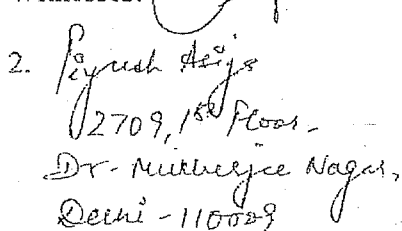 2. Piyush
2709, 1st Floor-
Dr- Mukherjee Nagar,
Delhi - 110009